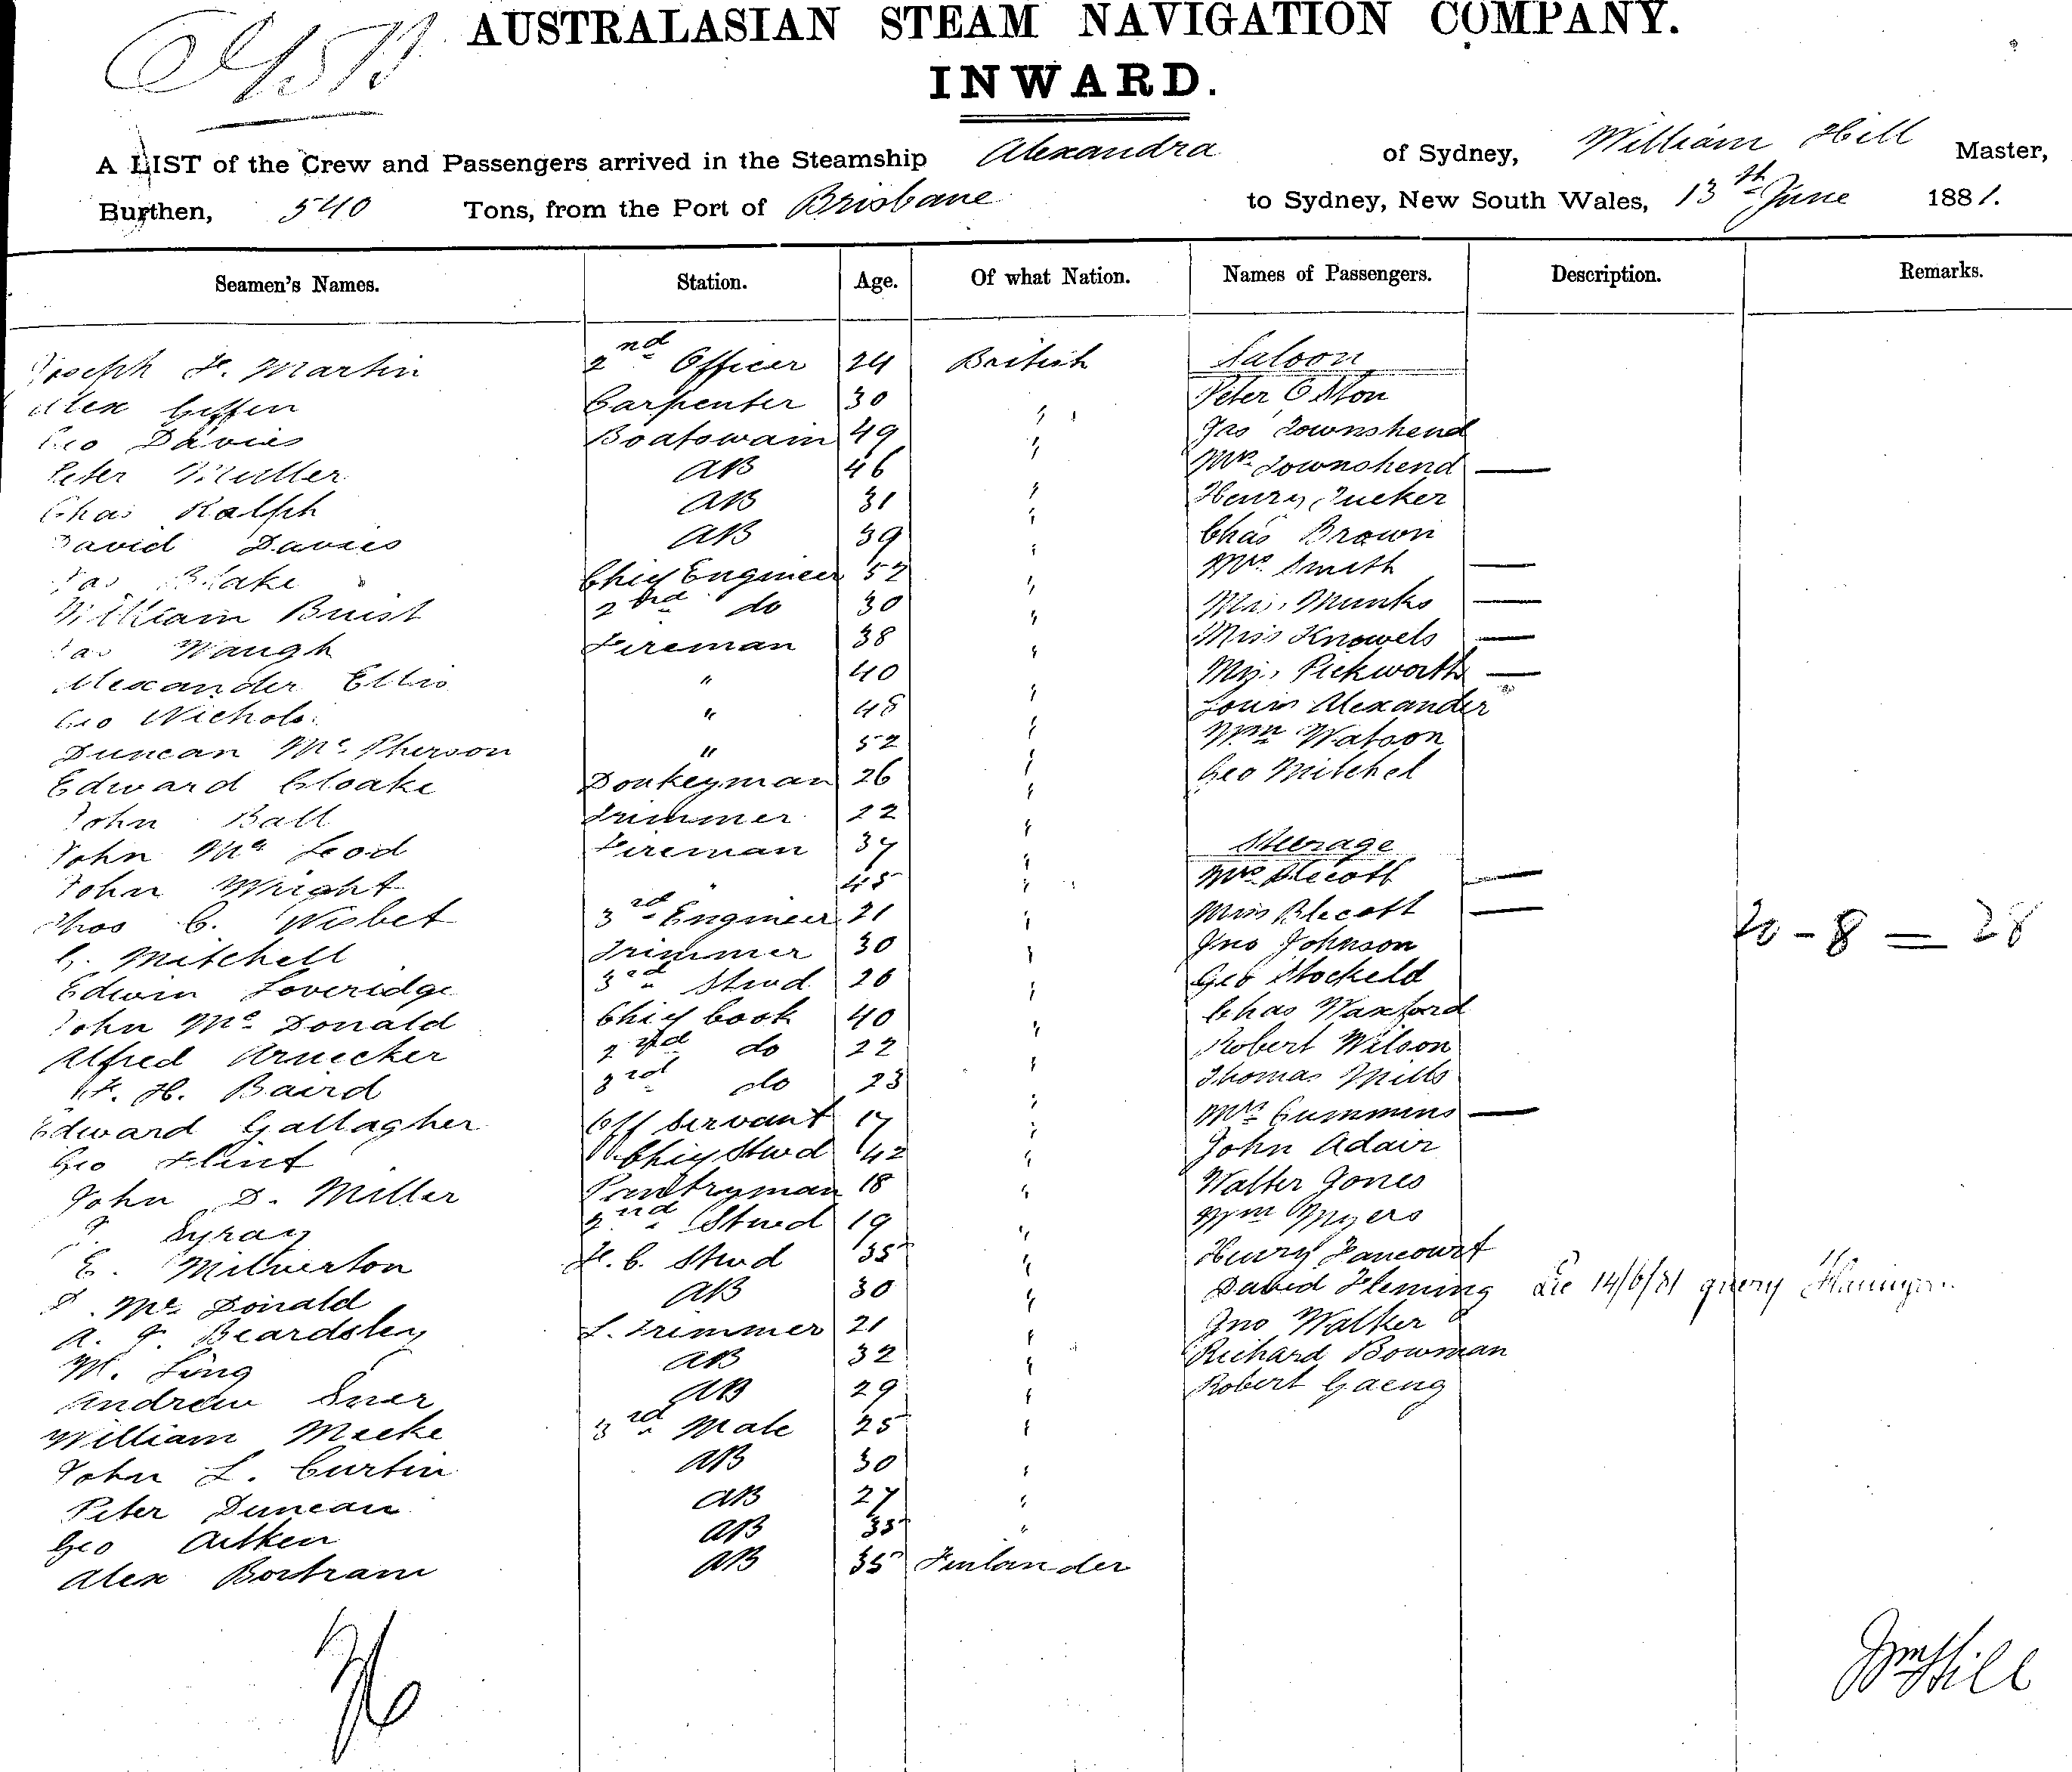 AUSTRALASIAN STEAM NAVIGATION COMPANY.
INWARD.
A LIST of the Crew and Passengers arrived in the Steamship Alexandra of Sydney, William Hill Master,
Burthen, 540 Tons, from the Port of Brisbane to Sydney, New South Wales, 13th June 1881.
Seamen's Names. Station. Age. Of what Nation. Names of Passengers. Description. Remarks.
Joseph F. Martin 2nd Officer 24 British Saloon
Alex Giffen Carpenter 30 " Peter
Geo Davies Boatswain 49 " Jas Townshend
Peter AB 46 " Mrs Townshend —
Chas Ralph AB 31 " Henry Tucker
David Davies AB 39 " Chas Brown
Jas Blake Chief Engineer 52 " Mrs Smith —
William Buist 2nd do 30 " Munks —
Jas Waugh Fireman 38 " Miss Knowels —
Alexander Ellis " 40 " Pickworth —
Geo Nichols " 48 " Louis Alexander
Duncan Mc Pherson " 52 " Wm Watson
Edward Cloake Donkeyman 26 " Geo Mitchel
John Ball Trimmer 22 "
John Mc Leod Fireman 37 " Steerage
John Wright " 45 " Mrs Blecott —
Thos C. Nisbet 3rd Engineer 21 " Miss Blecott —
G. Mitchell Trimmer 30 " Jno Johnson
Edwin Loveridge 3rd Stwd 26 " Geo Stockeld
John Mc Donald Chief Cook 40 " Chas Waxford
Alfred Arnecker 2nd do 22 " Robert Wilson
H. Baird 3rd do 23 " Thomas Mills
Edward Gallagher Off Servant 17 " Mrs Cummins —
Geo Flint Chief Stwd 42 " John Adair
John D. Miller Pantryman 18 " Walter Jones
Syray 2nd Stwd 19 " Wm Myers
E. Milverton F. C. Stwd 35 " Henry Hancourt
Mc Donald AB 30 " David Fleming 14/6/81 query
A. J. Beardsley L. Trimmer 21 " Jno Walker
M. Ling AB 32 " Richard Bowman
Andrew AB 29 " Robert Gaeng
William Meeke 3rd Mate 25 "
John L. Curtin AB 30 "
Peter Duncan AB 27 "
Geo Aitken AB 35 "
Alex Bortram AB 35 Finlander
20 - 8 = 28
36
Wm Hill